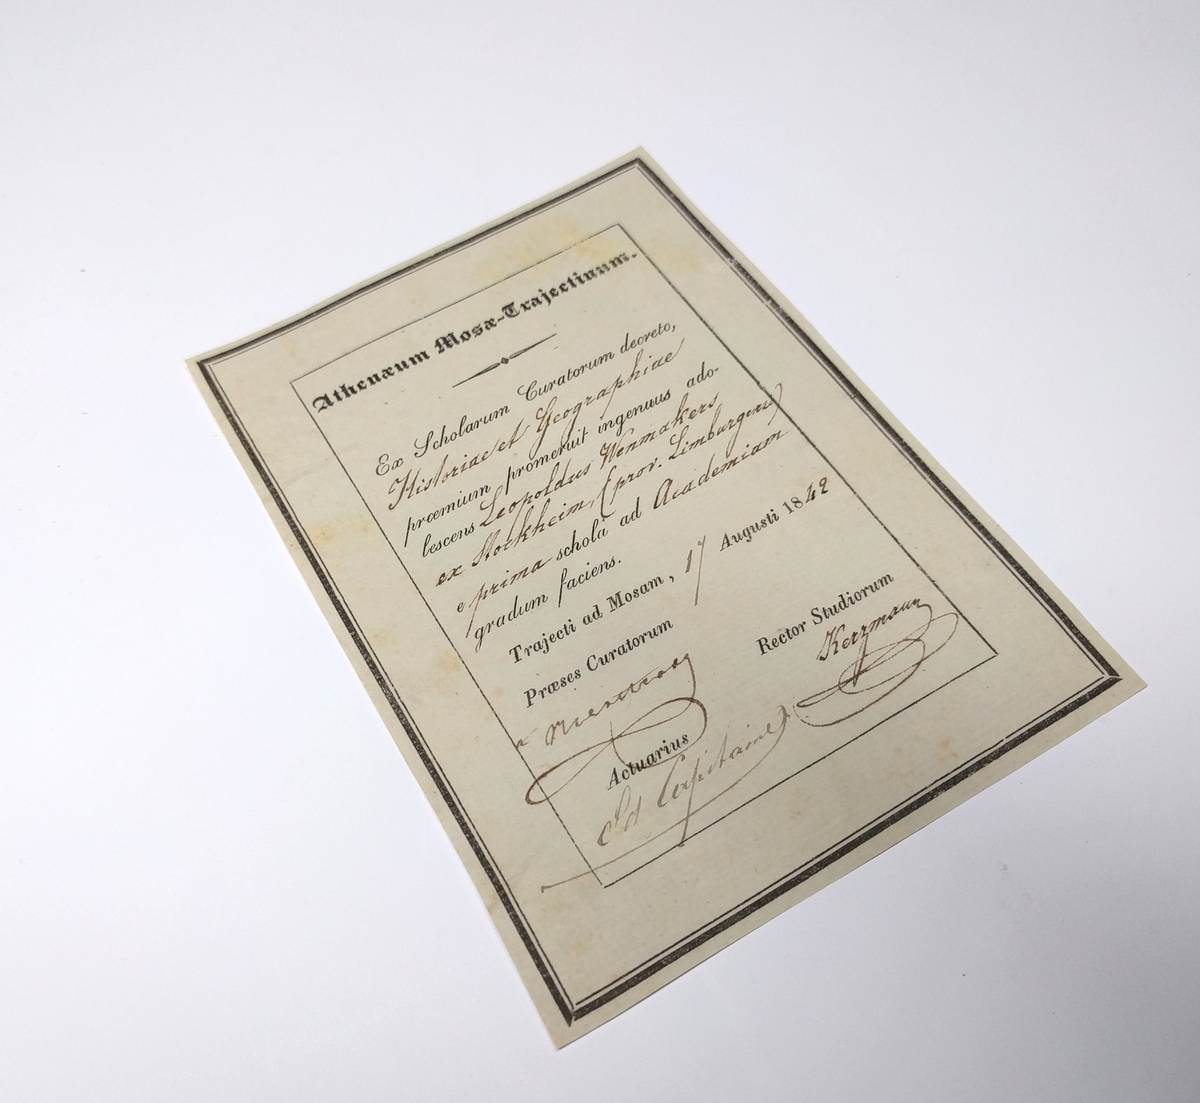 Athenæum Mosæ-Trajectinum.
Ex Scholarum Curatorum decreto,
Historiae et Geographiae
præmium promeruit ingenuus ado-
lescens Leopoldus Wenmakers
ex Stockheim, (prov. Limburgens)
e prima scholâ ad Academiam
gradum faciens.
Trajecti ad Mosam, 17 Augusti 1842
Præses Curatorum
Rector Studiorum
Kerzmann
Actuarius
Ed Capitaine